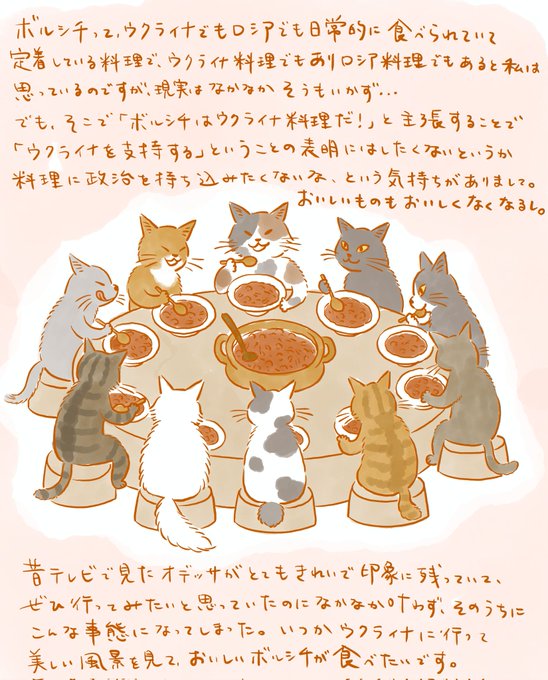 ボルシチって、ウクライナでもロシアでも日常的に食べられていて
定着している料理で、ウクライナ料理でもありロシア料理でもあると私は
思っているのですが、現実はなかなかそうもいかず…
でも、そこで「ボルシチはウクライナ料理だ!」と主張することで
「ウクライナを支持する」ということの表明にはしたくないというか
料理に政治を持ち込みたくないな、という気持ちがありまして。
おいしいものもおいしくなくなるし。
昔テレビで見たオデッサがとてもきれいで印象に残っていて、
ぜひ行ってみたいと思っていたのになかなか叶わず、そのうちに
こんな事態になってしまった。いつかウクライナに行って
美しい風景を見て、おいしいボルシチが食べたいです。